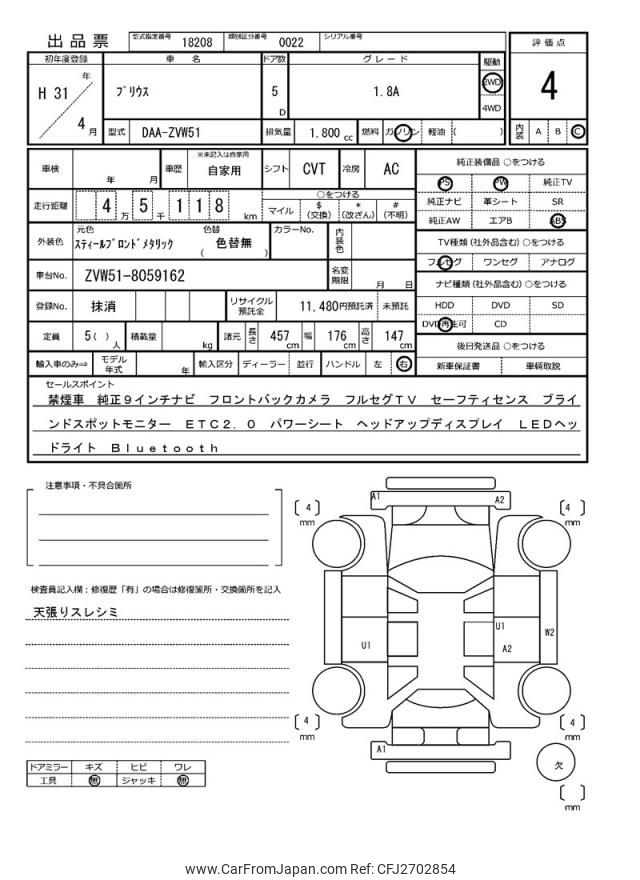 出品票 型式指定番号 18208 類別区分番号 0022 シリアル番号
評価点
4
内装 A B C
初年度登録 車名 ドア数 グレード 駆動
H 31 年 4 月
プリウス
5 D
1.8A
2WD
4WD
型式 DAA-ZVW51 排気量 1,800 cc 燃料 ガソリン 軽油 ( )
車検 年 月 車歴 ※未記入は自家用 自家用 シフト CVT 冷房 AC
走行距離 4 万 5 千 1 1 8 km
○をつける
マイル $(交換) *(改ざん) #(不明)
外装色 元色 スティールブロンドメタリック 色替 ( 色替無 ) カラーNo. 内装色
車台No. ZVW51-8059162 名変期限 月 日
登録No. 抹消 リサイクル預託金 11,480円預託済 未預託
定員 5( ) 人 積載量 kg 諸元 長さ 457 cm 幅 176 cm 高さ 147 cm
輸入車のみ⇒ モデル年式 年 輸入区分 ディーラー 並行 ハンドル 左 右
純正装備品 ○をつける
PS PW 純正TV
純正ナビ 革シート SR
純正AW エアB ABS
TV種類 (社外品含む) ○をつける
フルセグ ワンセグ アナログ
ナビ種類 (社外品含む) ○をつける
HDD DVD SD
DVD再生可 CD
後日発送品 ○をつける
新車保証書 車輌取説
セールスポイント
禁煙車 純正9インチナビ フロントバックカメラ フルセグTV セーフティセンス ブライ
ンドスポットモニター ETC2.0 パワーシート ヘッドアップディスプレイ LEDヘッ
ドライト Bluetooth
注意事項・不具合箇所
検査員記入欄：修復歴「有」の場合は修復箇所・交換箇所を記入
天張りスレシミ
ドアミラー キズ ヒビ ワレ
工具 無 ジャッキ 無
[ 4 ] mm
A1 A2
[ 4 ] mm
U1
U1
A2
W2
[ 4 ] mm
A1
[ 4 ] mm
欠
[ ] mm
www.CarFromJapan.com Ref: CFJ2702854